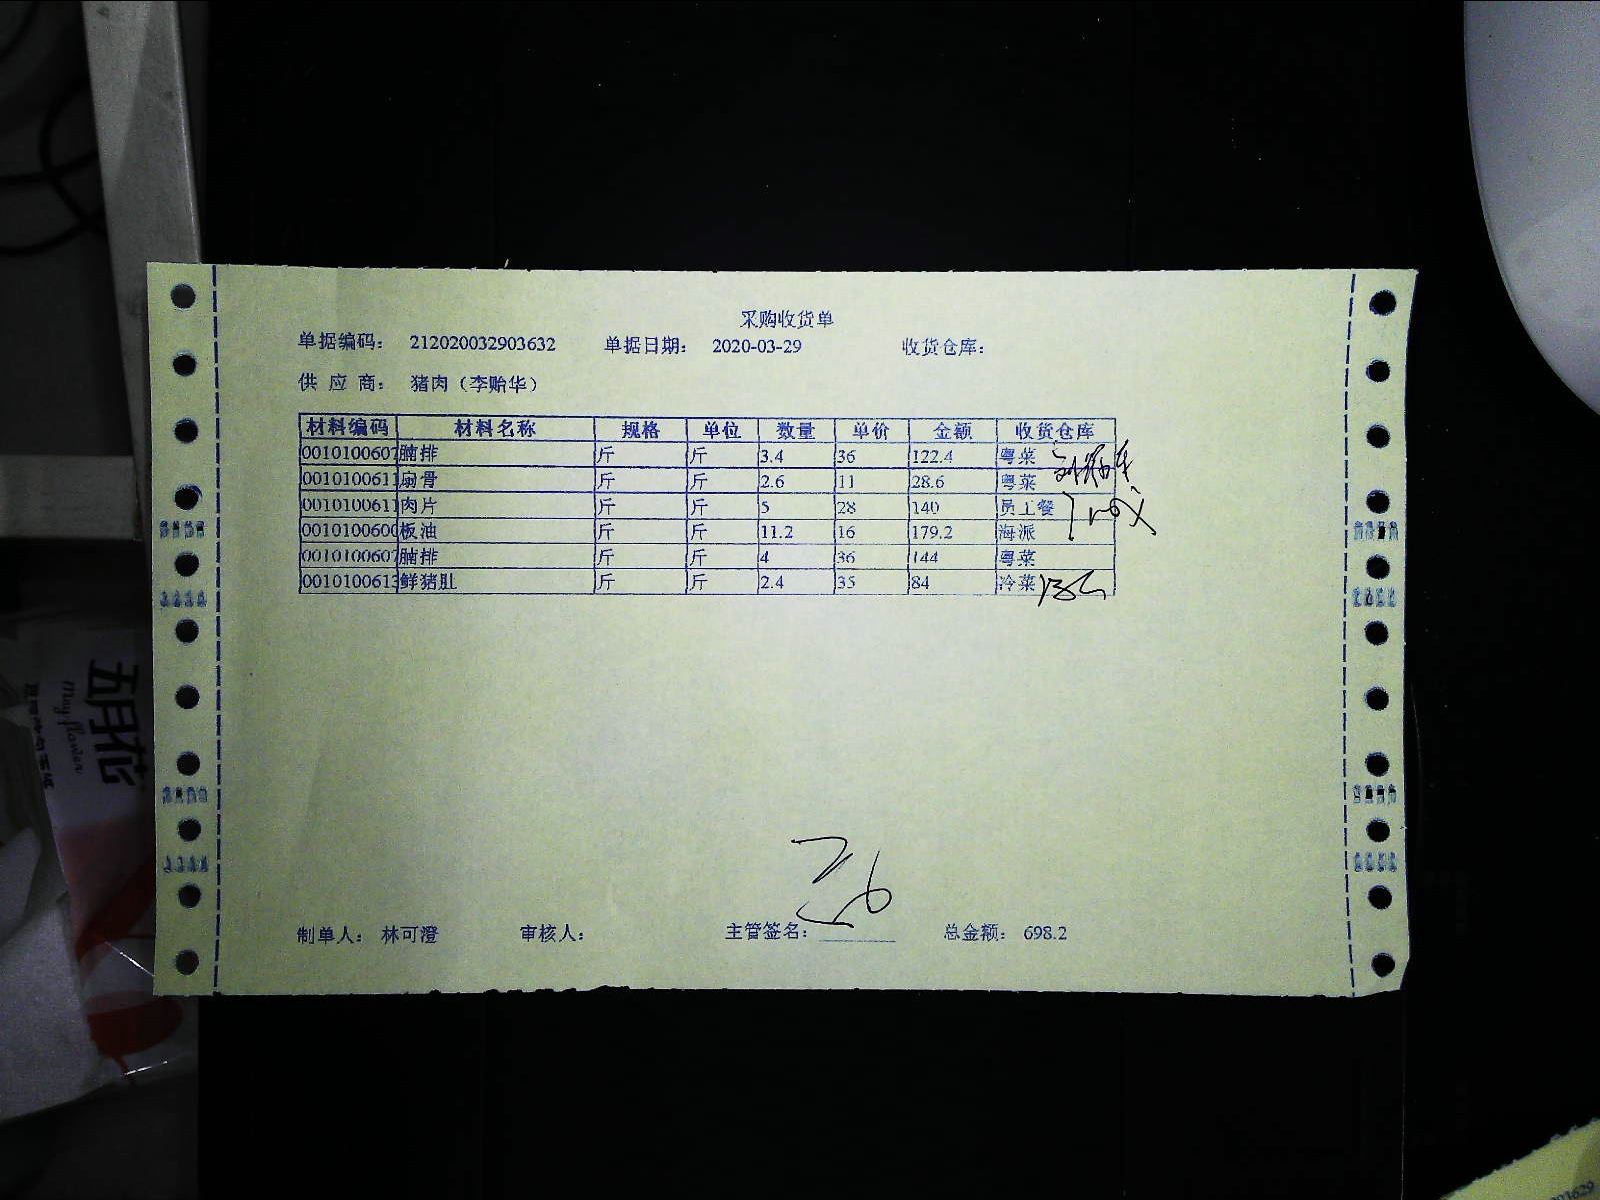 采购收货单
单据编码： 212020032903632 单据日期： 2020-03-29 收货仓库：
供应商： 猪肉（李贻华）
材料编码 材料名称 规格 单位 数量 单价 金额 收货仓库
0010100607 腩排 斤 斤 3.4 36 122.4 粤菜
0010100611 扇骨 斤 斤 2.6 11 28.6 粤菜
0010100611 肉片 斤 斤 5 28 140 员工餐
0010100600 板油 斤 斤 11.2 16 179.2 海派
0010100607 腩排 斤 斤 4 36 144 粤菜
0010100613 鲜猪肚 斤 斤 2.4 35 84 冷菜
制单人： 林可澄 审核人： 主管签名： 总金额： 698.2
五月花
May flower